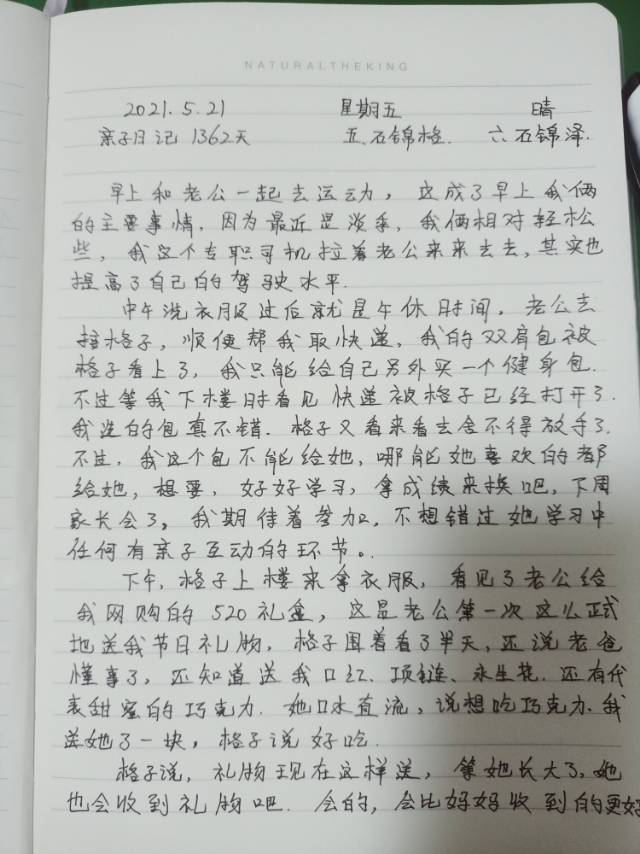 NATURALTHEKING
2021.5.21 星期五 晴
亲子日记 1362天 五.石锦格. 六石锦泽.
早上和老公一起去运动，这成了早上我俩
的主要事情，因为最近是淡季，我俩相对轻松
些，我这个专职司机拉着老公来来去去，其实也
提高了自己的驾驶水平.
中午洗衣服过后就是午休时间，老公去
接格子，顺便帮我取快递，我的双肩包被
格子看上了，我只能给自己另外买一个健身包.
不过等我下楼时看见快递被格子已经打开了.
我选的包真不错.格子又看来看去舍不得放手了.
不过，我这个包不能给她，哪能她喜欢的都
给她，想要，好好学习，拿成绩来换吧，下周
家长会了，我期待着参加，不想错过她学习中
任何有亲子互动的环节。.
下午，格子上楼来拿衣服，看见了老公给
我网购的520礼盒，这是老公第一次这么正式
地送我节日礼物，格子围着看了半天，还说老爸
懂事了，还知道送我口红、项链、永生花.还有代
表甜蜜的巧克力.她口水直流，说想吃巧克力.我
送她了一块，格子说好吃.
格子说，礼物现在这样送，等她长大了，她
也会收到礼物吧.会的，会比好好收到的更好